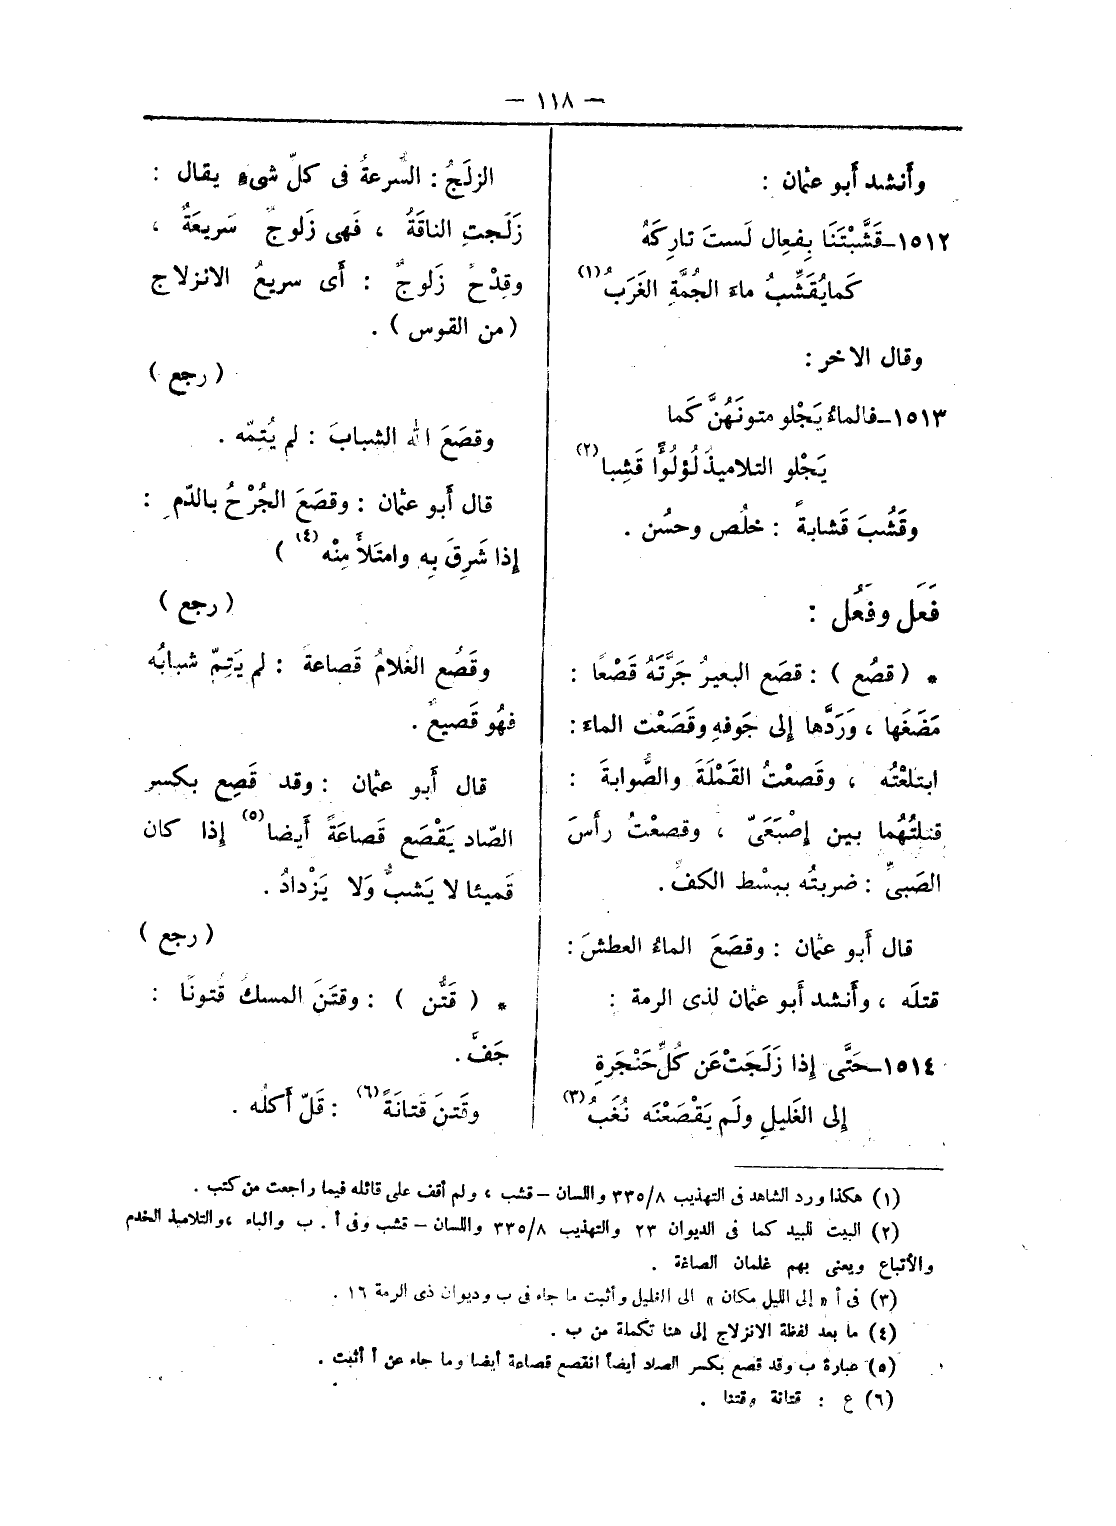 — ١١٨ —
وأَنشد أَبو عثمان :
١٥١٢ـ قَشَّبْتَنَا بِفعِال لَستَ تارِكَهُ
كَما يُقَشِّبُ ماءَ الجُمَّةِ الغَرَبُ (١)
وقال الاخر :
١٥١٣ـ فالماءُ يَجْلو متونَهُنَّ كَما
يَجْلو التلاميذُ لُؤلُؤًا قَشِبا (٢)
وقَشُبَ قَشابةً : خلُص وحسُن .
فَعَل وفَعُل :
* ( قصُع ) : قصَع البعيرُ جَرَّتَهُ قَصْعًا :
مَضَغَها ، وَرَدَّها إِلى جَوفهِ وقَصَعْت الماءَ :
ابتلعْتُه ، وقَصعْتُ القَمْلَةَ والصُّوابةَ :
قتلتُهُما بين إِصْبَعَىّ ، وقصعْتُ رأسَ
الصَبىِّ : ضربتُه ببسْط الكفّ .
قال أَبو عثمان : وقصَعَ الماءُ العطشَ :
قتلَه ، وأَنشد أَبو عثمان لذى الرمة :
١٥١٤ـ حَتَّى إِذا زَلَجَتْ عَن كُلِّ حَنْجَرةٍ
إِلى الغَليلِ ولَم يَقْصَعْنَه نُغَبُ (٣)
الزلَجُ : السُّرعةُ فى كلّ شىءٍ يقال :
زَلَجتِ الناقَةُ ، فَهى زَلوجٌ سَريعَةٌ ،
وقِدْحٌ زَلوجٌ : أَى سريعُ الانزلاج
( من القوس ) .
( رجع )
وقصَعَ الله الشبابَ : لم يُتِمّه .
قال أَبو عثمان : وقصَعَ الجُرْحُ بالدّم :
إذا شَرِقَ بِه وامتَلأَ مِنْه (٤) )
( رجع )
وقَصُع الغُلامُ قَصاعةً : لم يَتِمّ شبابُه
فهُو قَصيعٌ .
قال أَبو عثمان : وقد قَصِع بكسر
الصّاد يَقْصَع قَصاعَةً أَيضا (٥) إِذا كان
قَميئا لا يَشبُّ وَلا يَزْدادُ .
( رجع )
* ( قَتُن ) : وقتَنَ المسكُ قُتونًا :
جَفَّ .
وقَتنَ قَتانَةً (٦) : قَلّ أَكلُه .
(١) هكذا ورد الشاهد فى التهذيب ٣٣٥/٨ واللسان – قشب ، ولم أقف على قائله فيما راجعت من كتب .
(٢) البيت للبيد كما فى الديوان ٢٣ والتهذيب ٣٣٥/٨ واللسان – قشب وفى أ . ب والباء ، والتلاميذ الخدم
والأتباع ويعنى بهم غلمان الصاغة .
(٣) فى أ « إلى الليل مكان » الى الغليل وأثبت ما جاء فى ب وديوان ذى الرمة ١٦ .
(٤) ما بعد لفظة الانزلاج إلى هنا تكملة من ب .
(٥) عبارة ب وقد قصع بكسر الصاد أيضاً انقصع قصاعة أيضا وما جاء عن أ أثبت .
(٦) ع : قتانة وقتنا .